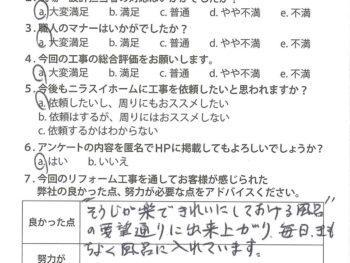 a.大変満足　b.満足　c.普通　d.やや不満　e.不満
3.職人のマナーはいかがでしたか？
a.大変満足　b.満足　c.普通　d.やや不満　e.不満
4.今回の工事の総合評価をお願いします。
a.大変満足　b.満足　c.普通　d.やや不満　e.不満
5.今後もニラスイホームに工事を依頼したいと思われますか？
a.依頼したいし、周りにもおススメしたい
b.依頼はするが、周りにはおススメしない
c.依頼するかはわからない
6.アンケートの内容を匿名でHPに掲載してもよろしいでしょうか？
a.はい　b.いいえ
7.今回のリフォーム工事を通してお客様が感じられた
弊社の良かった点、努力が必要な点をアドバイスください。
良かった点
"そうじが楽できれいにしておける風呂"
の要望通りに出来上がり、毎日、きも
ちよく風呂に入れています。
努力が